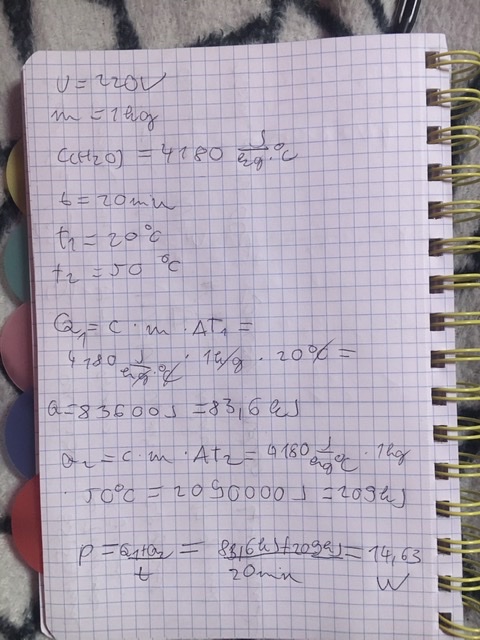 U = 220V
m = 1kg
C(H2O) = 4180 J/kg·°C
t = 20min
t1 = 20°C
t2 = 50 °C
Q1 = c · m · ΔT1 =
4180 J/kg·°C · 1kg · 20°C =
Q = 83600J = 83,6kJ
Q2 = c · m · ΔT2 = 4180 J/kg°C · 1kg
· 50°C = 2090000J = 209kJ
P = Q1+Q2/t = 83,6kJ+209kJ/20min = 14,63
W